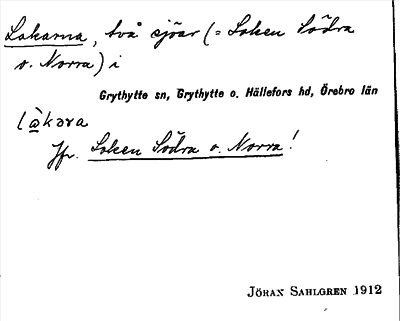 Lokarna, två sjöar (= Loken Södra
o. Norra) i
Grythytte sn, Grythytte o. Hällefors hd, Örebro län
lò̱kəra
Jfr. Loken Södra o. Norra!
JÖRAN SAHLGREN 1912